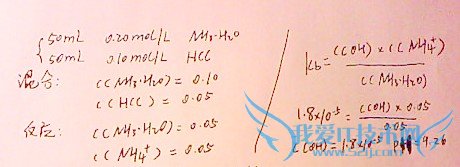 50mL 0.20mol/L NH3·H2O
50mL 0.10mol/L HCl
混合: C(NH3·H2O) = 0.10
C(HCl) = 0.05
反应: C(NH3·H2O) = 0.05
C(NH4+) = 0.05
Kb = C(OH) × C(NH4+) / C(NH3·H2O)
1.8×10-5 = C(OH) × 0.05 / 0.05
C(OH) = 1.8×10-5 9.26
我爱IT技术网